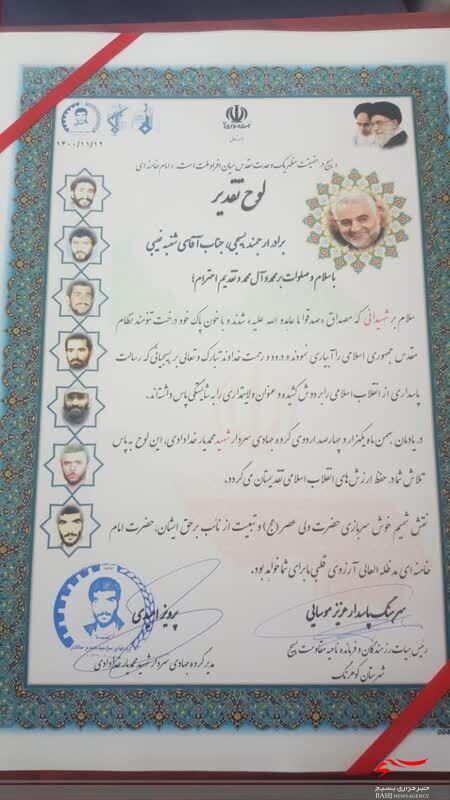 ۱۴۰۰/۱۱/۱۲
بسیج در حقیقت مظهر یک وحدت مقدس میان افراد ملت است. «امام خامنه ای
لوح تقدیر
برادر ارجمند بسیجی، جناب آقای
با سلام و صلوات بر محمد و آل محمد و تقدیم احترام؛
سلام بر شهیدانی که مصداق «صدقوا ما عاهدو الله علیه» شدند و با خون پاک خود درخت تنومند نظام
مقدس جمهوری اسلامی را آبیاری نمودند و درود و رحمت خداوند تبارک و تعالی بر بسیجیانی که رسالت
پاسداری از انقلاب اسلامی را بر دوش کشیده و عنوان ولایتمداری را به شایستگی پاس داشته‌اند.
در یادمان بهمن ماه یکهزار و چهارصد اردوی گروه جهادی سردار شهید محمدیار خدادادی، این لوح به پاس
تلاش شما در حفظ ارزش های انقلاب اسلامی تقدیمتان می گردد.
نقش شمیم خوش سربازی حضرت ولی عصر (عج) و تبعیت از نائب برحق ایشان، حضرت امام
خامنه ای مد ظله العالی آرزوی قلبی ما برای شما خواهد بود.
سرهنگ پاسدار عزیز موسایی
رئیس هیات رزمندگان و فرمانده ناحیه مقاومت بسیج
شهرستان کوهرنگ
پرویز اسدی
مدیر گروه جهادی سردار شهید محمدیار خدادادی
004
خبرگزاری بسیج
BASIJ NEWS AGENCY